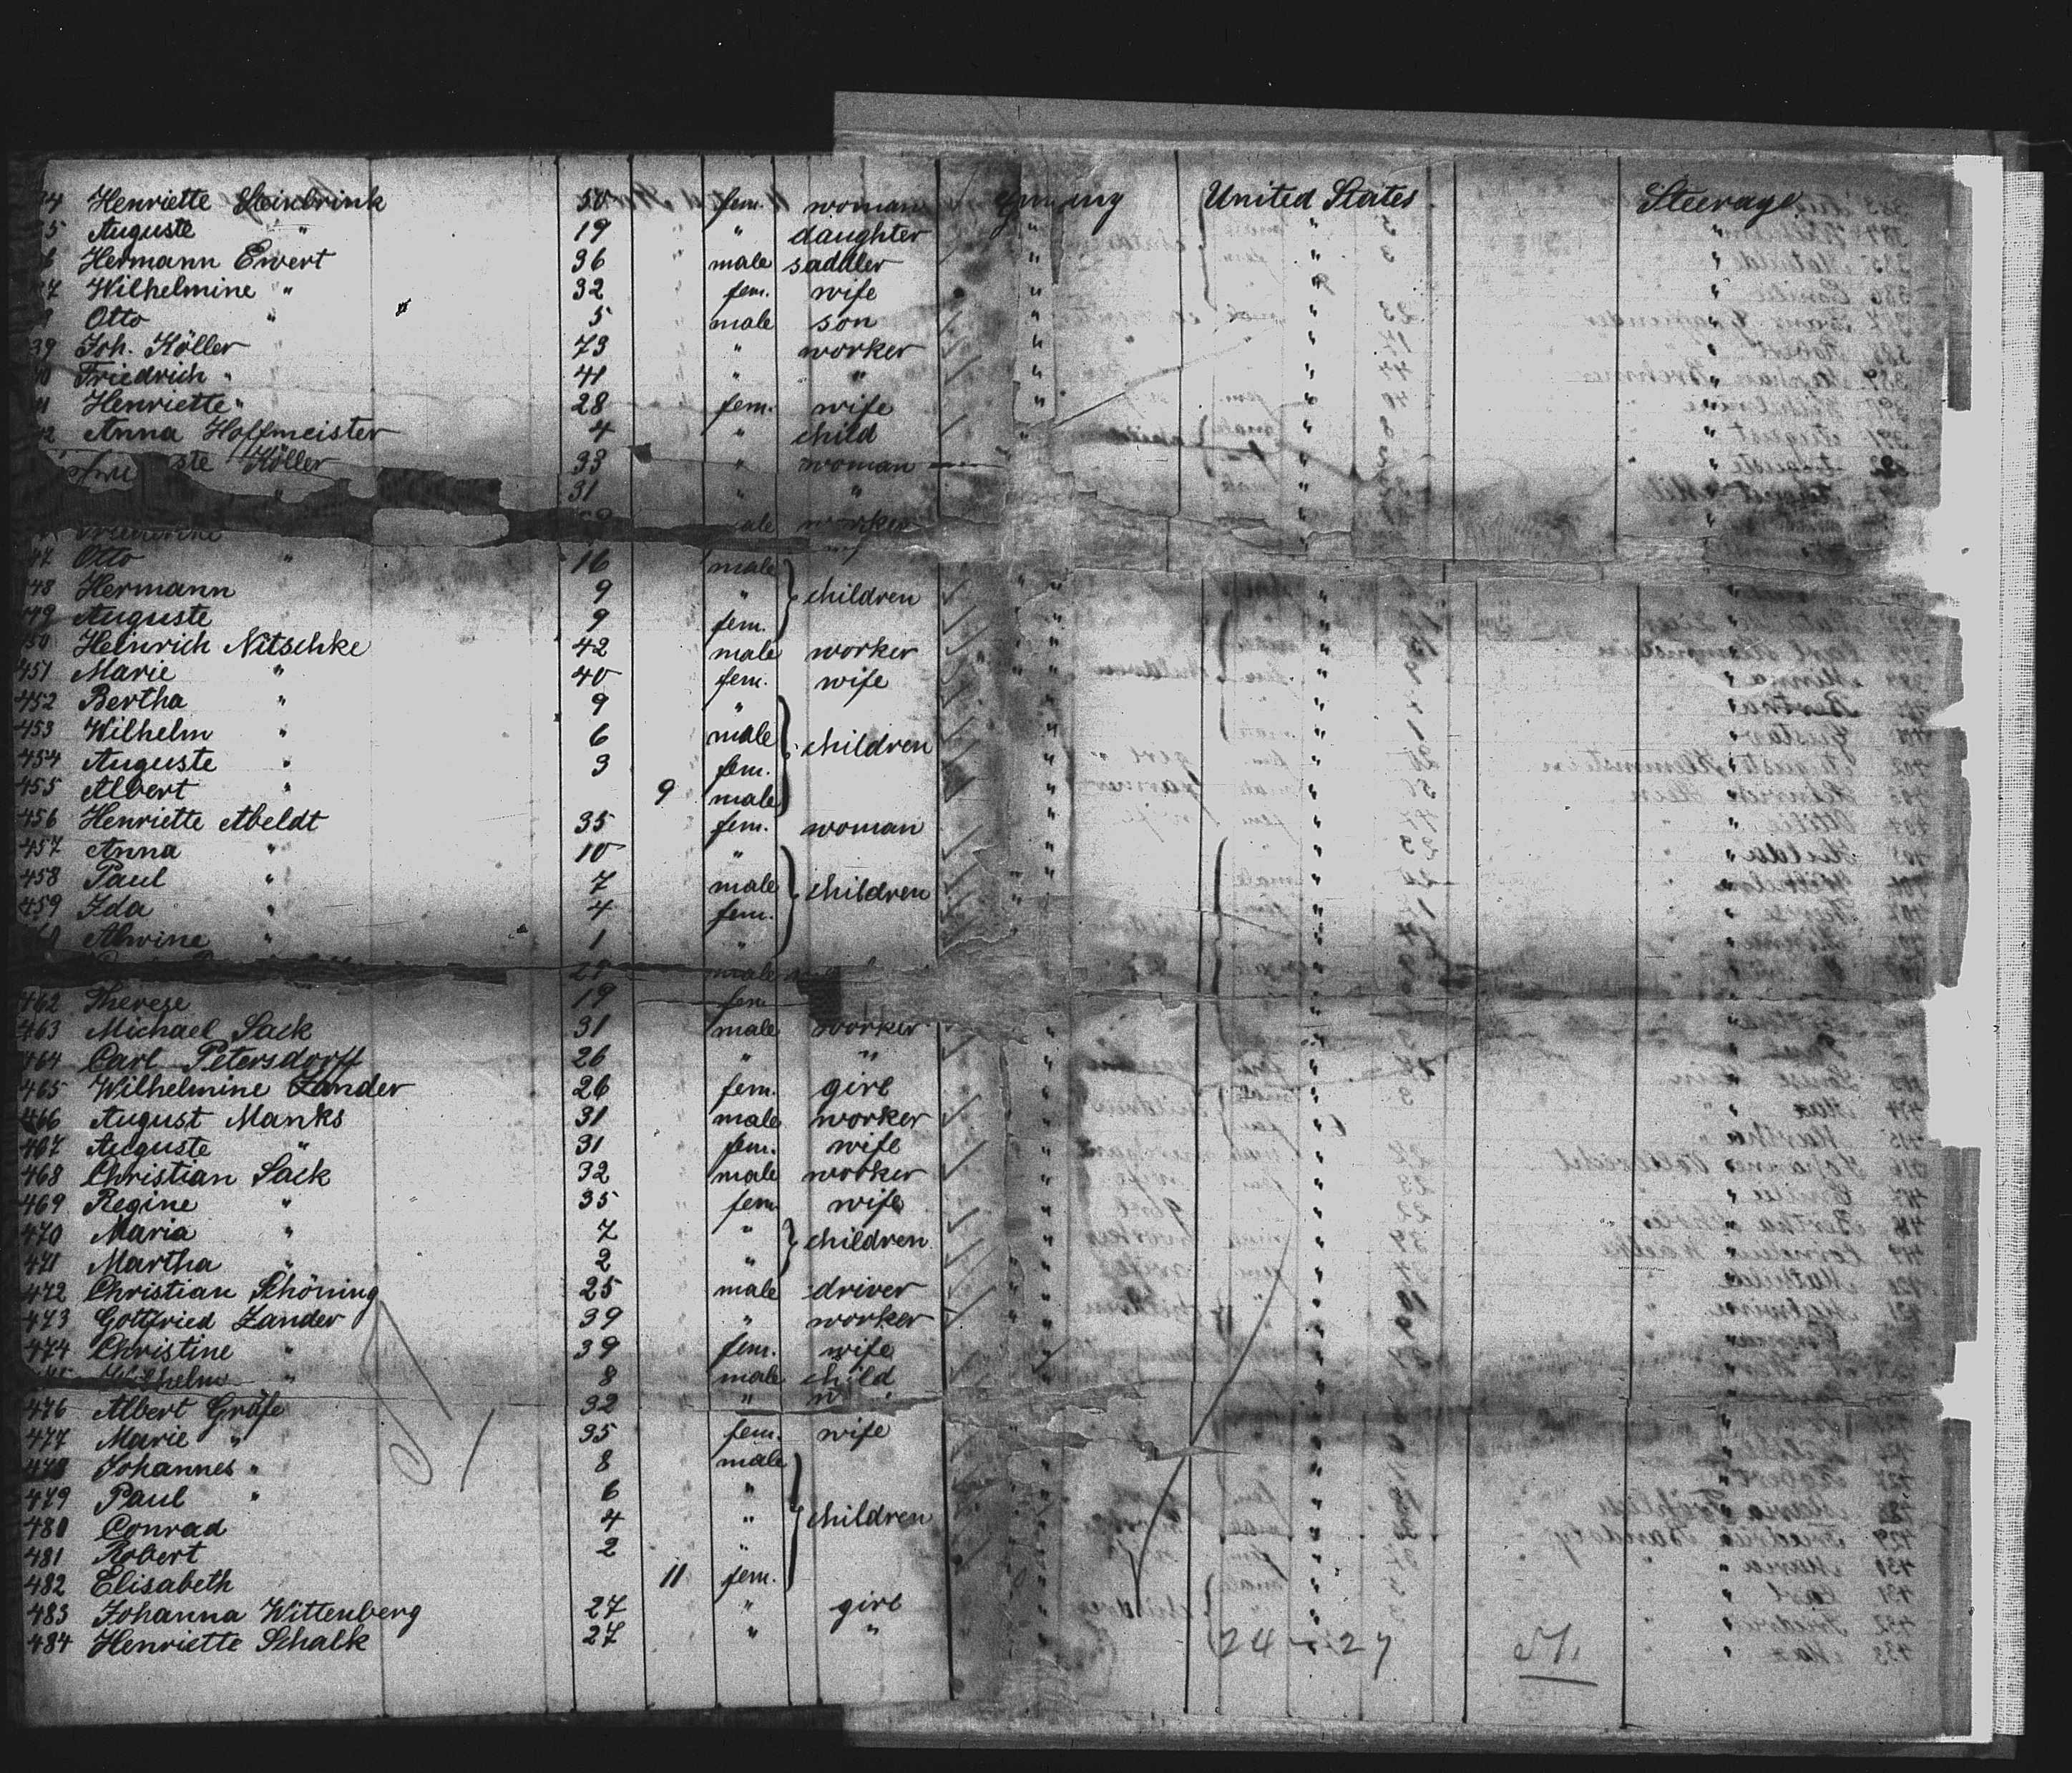 34 Henriette Steinbrink 50 fem. woman Germany United States Steerage
35 Auguste " 19 " daughter " " "
36 Hermann Ewert 36 male saddler " " "
37 Wilhelmine " 32 fem. wife " " "
38 Otto " 5 male son " " "
39 Joh. Köller 73 " worker " " "
40 Friedrich " 41 " " " " "
41 Henriette " 28 fem. wife " " "
42 Anna Hoffmeister 4 " child " " "
Köller 33 " woman " "
" 31 " " " "
male worker "
47 Otto " 16 male
48 Hermann 9 " children " " "
449 Auguste 9 fem. " " "
450 Heinrich Nitschke 42 male worker " " "
451 Marie " 40 fem. wife " " "
452 Bertha " 9 " " " "
453 Wilhelm " 6 male children " " "
454 Auguste " 3 fem. " " "
455 Albert " 9 male " " "
456 Henriette Abeldt 35 fem. woman " " "
457 Anna " 10 " " " "
458 Paul " 7 male children " " "
459 Ida " 4 fem. " " "
460 Alwine " 1 " " "
male
462 Therese 19 fem.
463 Michael Sack 31 male worker " " "
464 Carl Petersdorff 26 " " " " "
465 Wilhelmine Zander 26 fem. girl " " "
466 August Manks 31 male worker " " "
467 Auguste " 31 fem. wife " " "
468 Christian Sack 32 male worker " " "
469 Regine " 35 fem. wife " " "
470 Maria " 7 " children " " "
471 Martha " 2 " " " "
472 Christian Schöning 25 male driver " " "
473 Gottfried Zander 39 " worker " " "
474 Christine " 39 fem. wife " " "
475 Wilhelm " 8 male child " " "
476 Albert Gräfe 32 " " "
477 Marie " 35 fem. wife " " "
478 Johannes " 8 male " " "
479 Paul " 6 " " " "
480 Conrad 4 " children " " "
481 Robert 2 " " " "
482 Elisabeth 11 fem. " " "
483 Johanna Wittenberg 27 " girl " " "
484 Henriette Schalk 27 " "
24 - 27